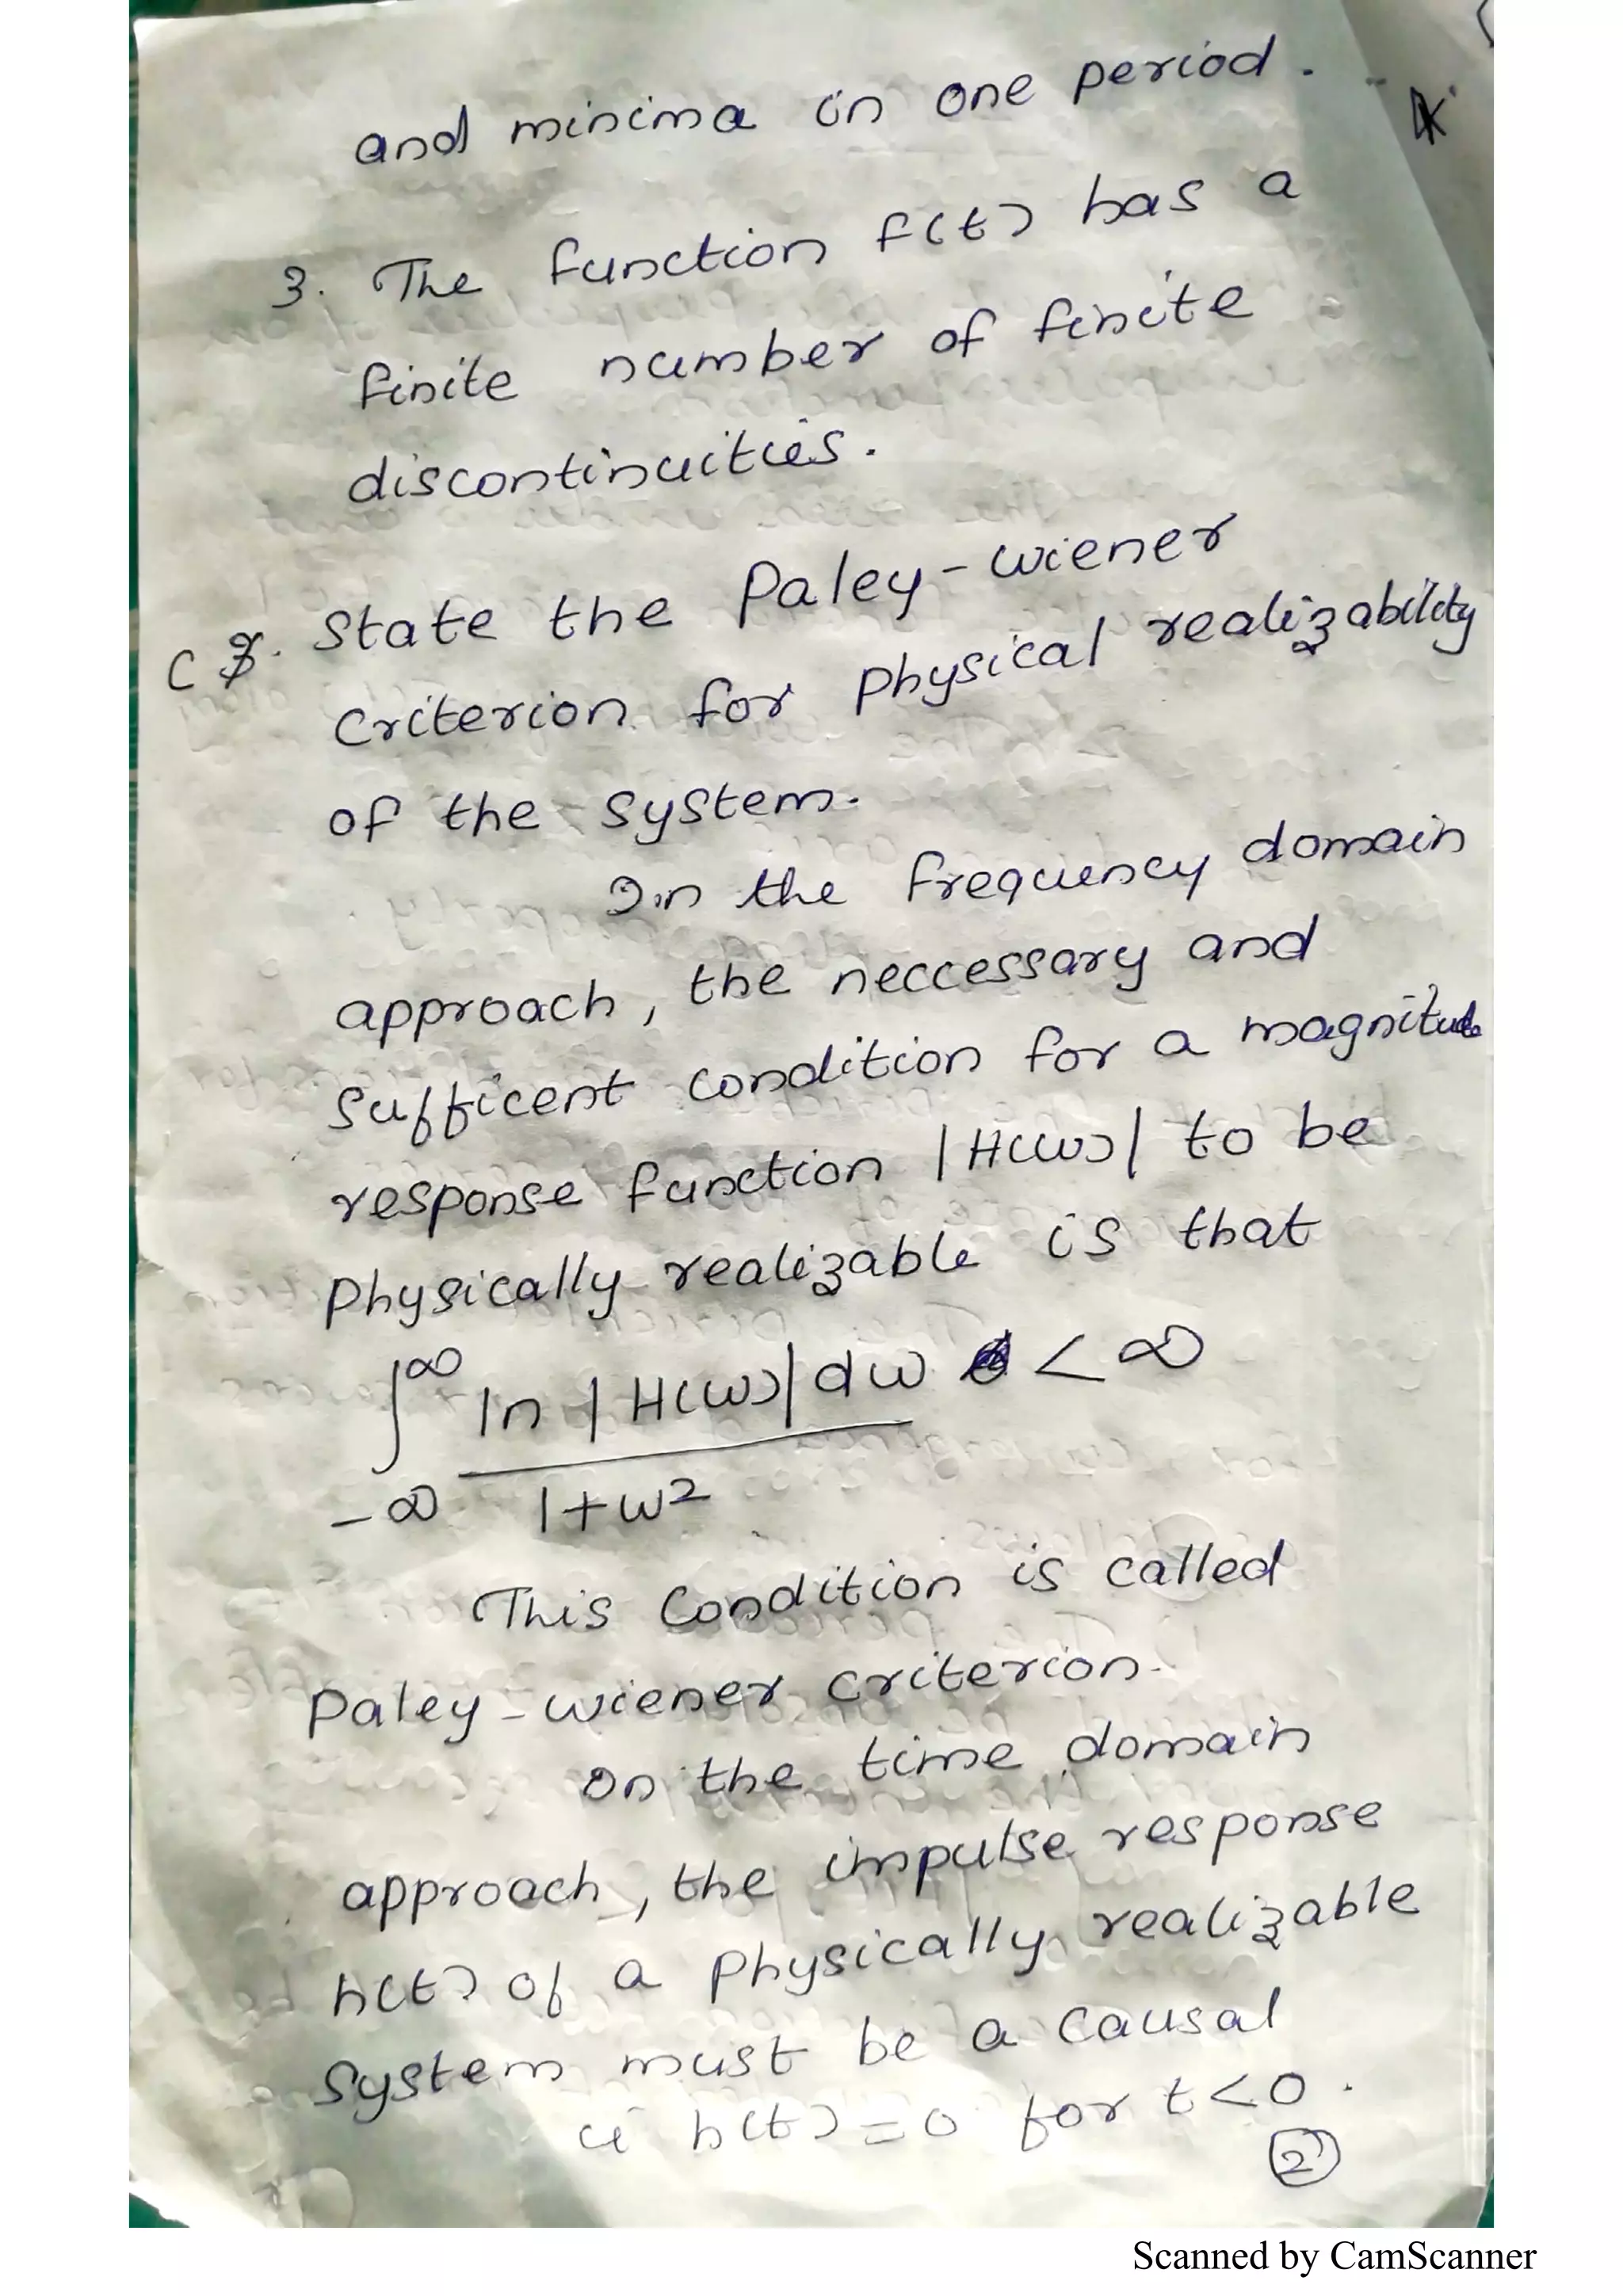 and minima in one period.
3. The function f(t) has a
finite number of finite
discontinuities.
State the Paley-wiener
criterion for physical realizability
of the system.
In the frequency domain
approach, the neccessary and
sufficent condition for a magnitude
response function |H(ω)| to be
physically realizable is that
∫ ∞ ln |H(ω)| dω < ∞
-∞ 1+ω²
This Condition is called
Paley-wiener criterion.
On the time domain
approach, the impulse response
h(t) of a physically realizable
system must be a causal
ie h(t) = 0 for t<0.
2
Scanned by CamScanner